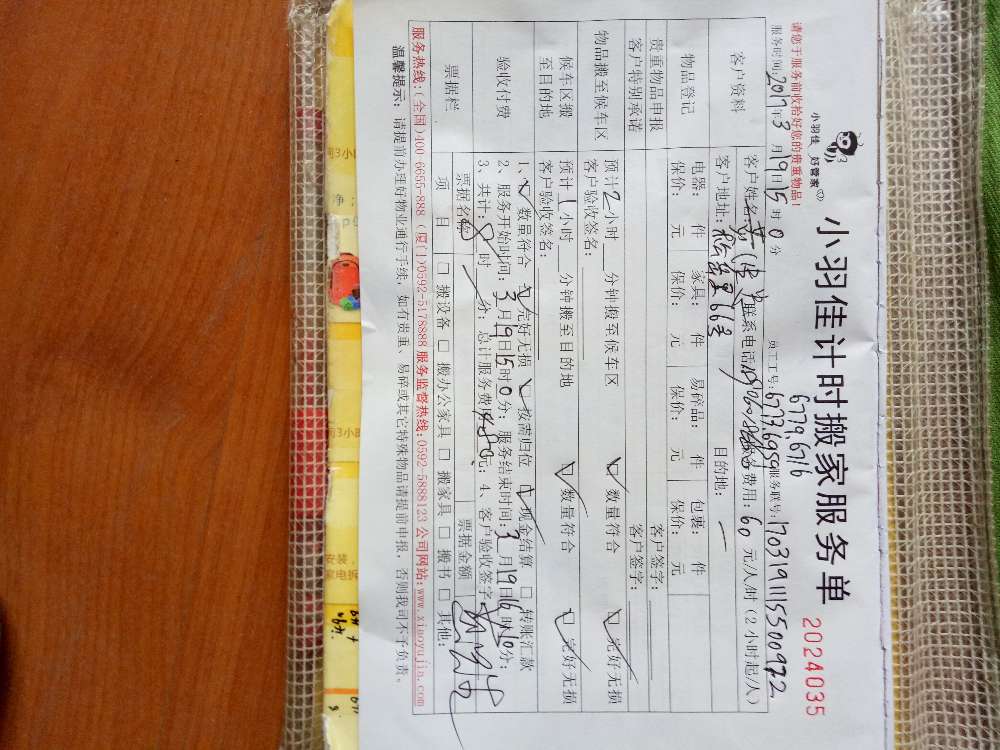 小羽佳 好管家
小羽佳计时搬家服务单
2024035
请您于服务前收拾好您的贵重物品!
6779.6716
服务时间: 2017年3月19日15时0分 员工工号: 6773.6959 服务联号: 17031911155500972
客户资料
客户姓名: 联系电话: 服务费用: 60元/人/时(2小时起/人)
客户地址: 目的地: 一
物品登记
电器: 件 家具: 件 易碎品: 件 包裹: 件
保价: 元 保价: 元 保价: 元 保价: 元
贵重物品申报 客户签字:
客户特别承诺 客户签字:
物品搬至候车区
预计2小时 分钟搬至候车区 数量符合 完好无损
客户验收签名:
候车区搬至目的地
预计1小时 分钟搬至目的地 数量符合 完好无损
客户验收签名:
验收付费
1、 数量符合 完好无损 按需归位 现金结算 □ 转账汇款
2、服务开始时间: 3月19日15时0分; 服务结束时间: 3月19日16时10分;
3、共计: 8时 分; 总计服务费用: 480元; 4、客户验收签字:
票据栏
票据名称 票据金额
项 目 □ 搬设备 □ 搬办公家具 □ 搬家具 □ 搬书 □ 其他:
服务热线:(全国)400-6655-888 (厦门)0592-5178888 服务监督热线:0592-5888123 公司网站:www.xiaoyujia.com
温馨提示: 请提前办理好物业通行手续, 如有贵重、易碎或其它特殊物品请提前申报, 否则我司不予负责。